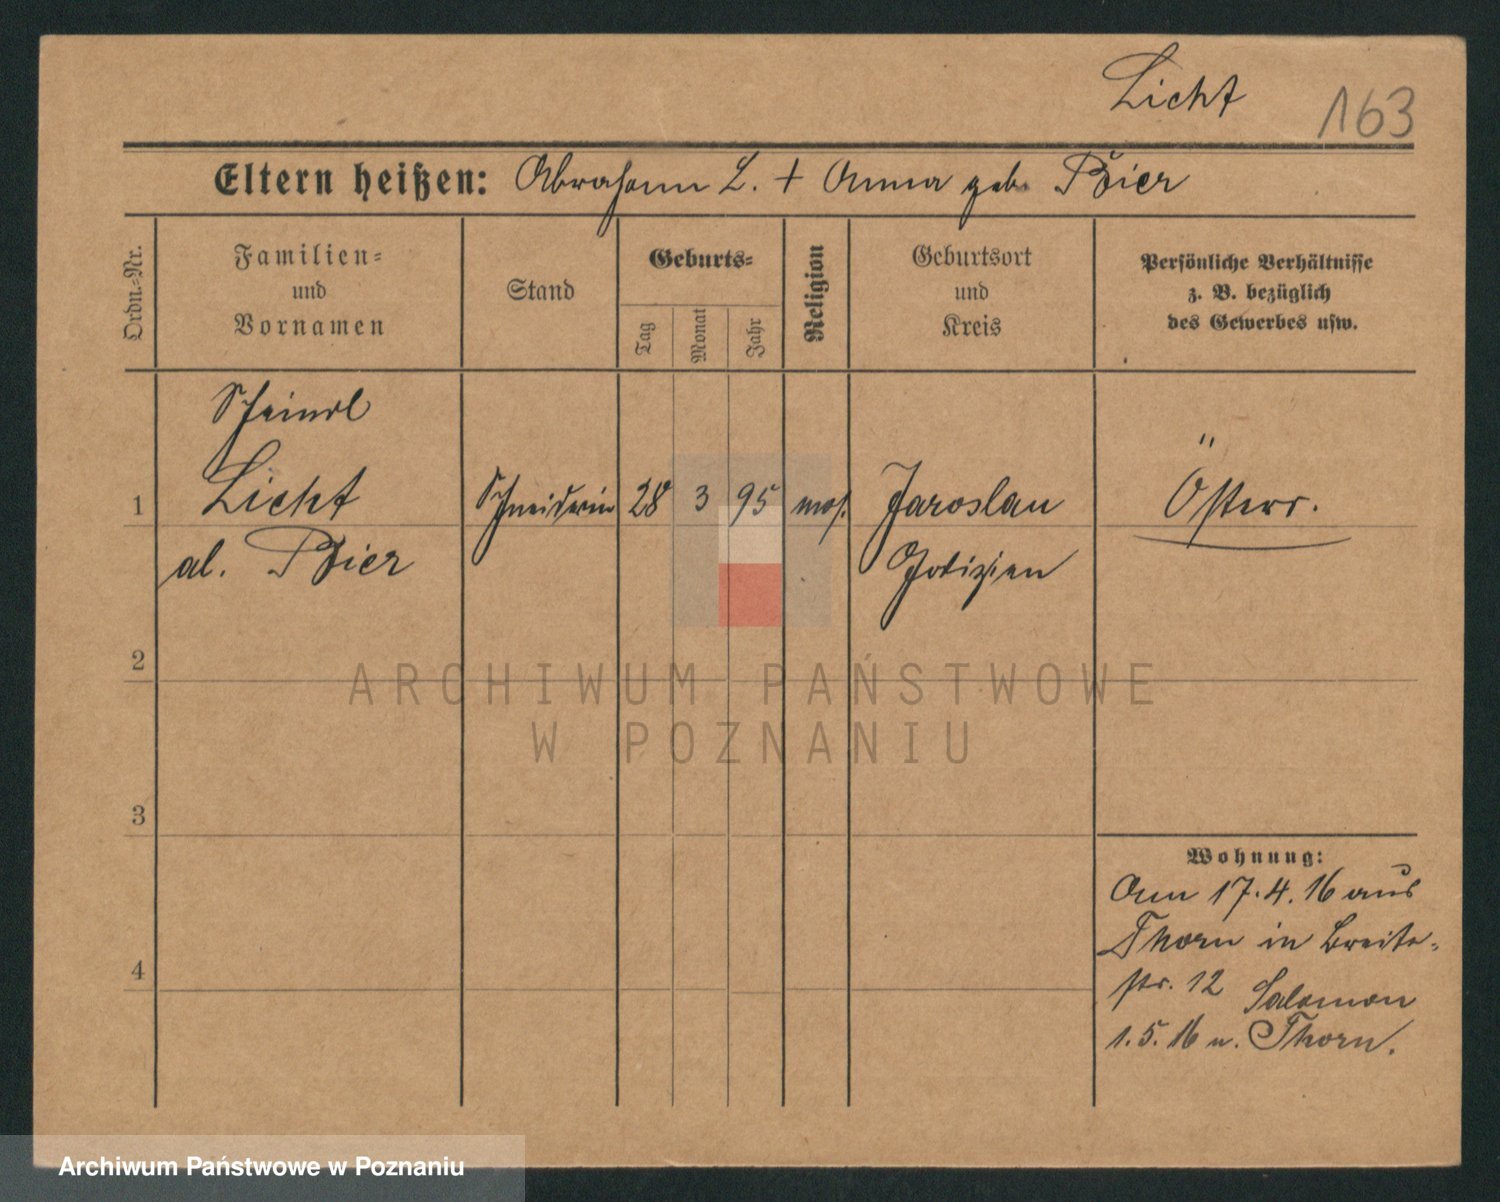 Licht
163
Eltern heißen: Abraham L. + Anna geb. Bier
Ordn.-Nr.
Familien-
und
Vornamen
Stand
Geburts-
Tag
Monat
Jahr
Religion
Geburtsort
und
Kreis
Persönliche Verhältnisse
z. B. bezüglich
des Gewerbes usw.
Scheindl
1 Licht Schneiderin 28 3 95 mos. Jaroslau Österr.
al. Bier Galizien
2
3
4
Wohnung:
Am 17.4.16 aus
Thorn in Breite-
str. 12 Salomon
1.5.16 n. Thorn.
ARCHIWUM PAŃSTWOWE
W POZNANIU
Archiwum Państwowe w Poznaniu